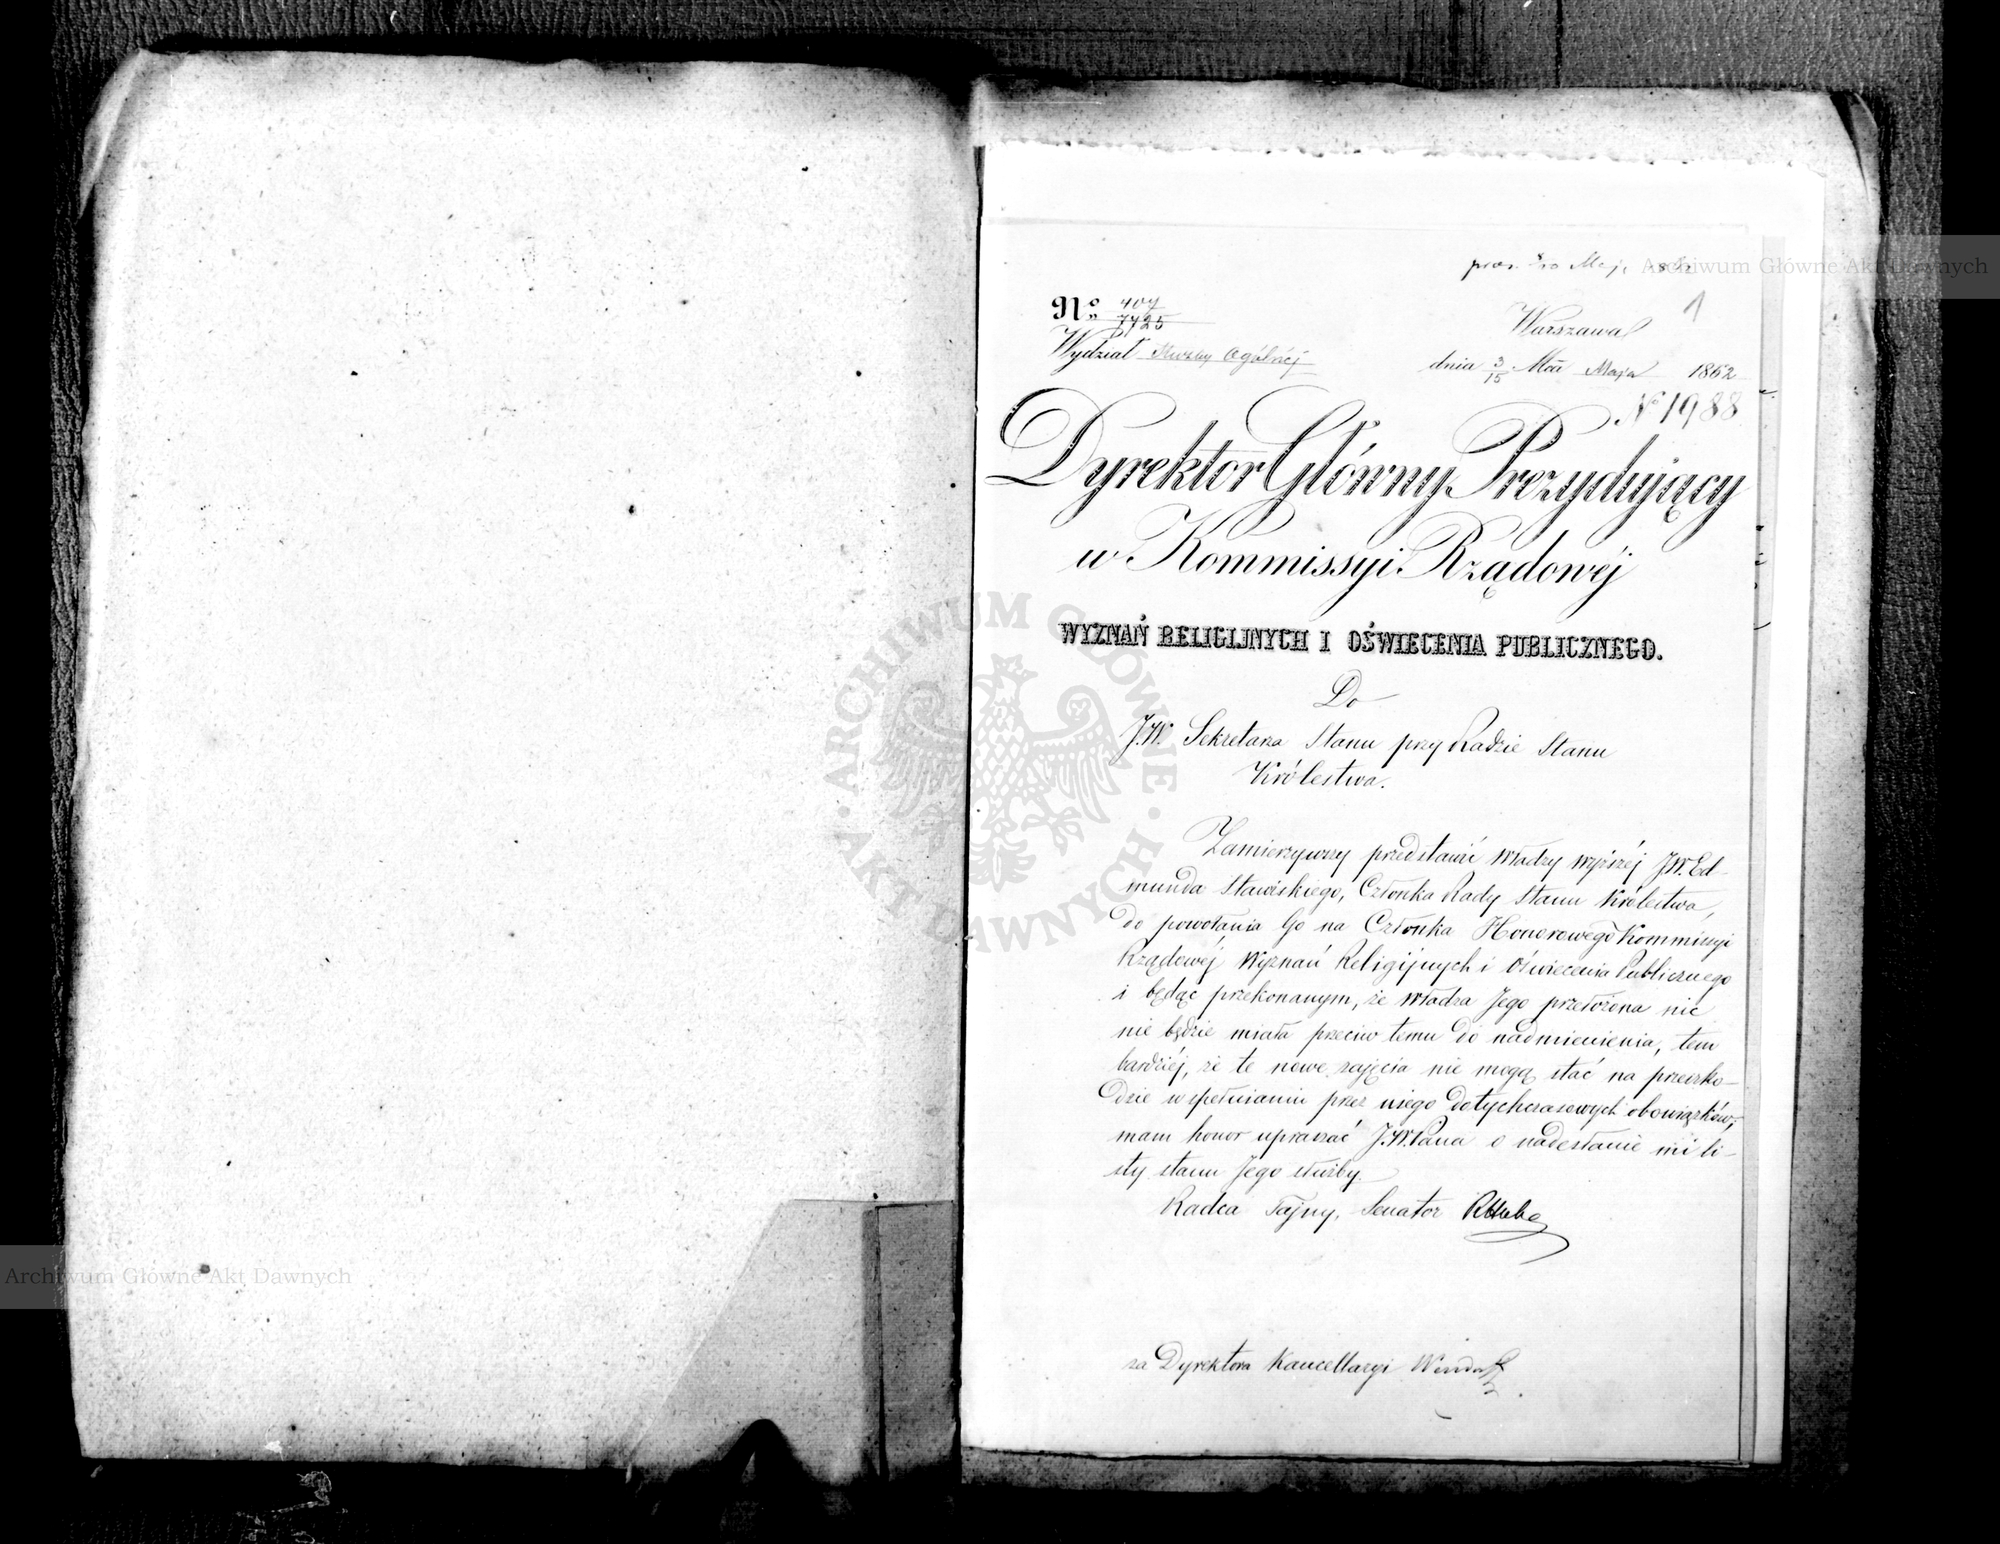 Maj
1
№ 407
7725
Warszawa
Wydział Służby Ogólnéj
dnia 3/15 Mca Maja 1862
№ 1988
Dyrektor Główny Prezydujący
w Kommissyi Rządowéj
WYZNAŃ RELIGIJNYCH I OŚWIECENIA PUBLICZNEGO.
Do
J.W. Sekretarza Stanu przy Radzie Stanu
Królestwa.
Zamierzywszy przedstawić Władzy wyższéj JW. Ed-
munda Stawiskiego, Członka Rady Stanu Królestwa,
do powołania Go na Członka Honorowego Kommissyi
Rządowéj Wyznań Religijnych i Oświecenia Publicznego
i będąc przekonanym, że Władza Jego przełożona nic
nie będzie miała przeciw temu do nadmienienia, tem
bardziéj, że te nowe zajęcia nie mogą stać na przeszko-
dzie w spełnianiu przez niego dotychczasowych obowiązków,
mam honor upraszać J.W. Pana o nadesłanie mi li-
sty stanu Jego służby.
Radca Tajny, Senator RHube
za Dyrektora Kancellaryi
Archiwum Główne Akt Dawnych
Archiwum Główne Akt Dawnych
ARCHIWUM GŁÓWNE AKT DAWNYCH